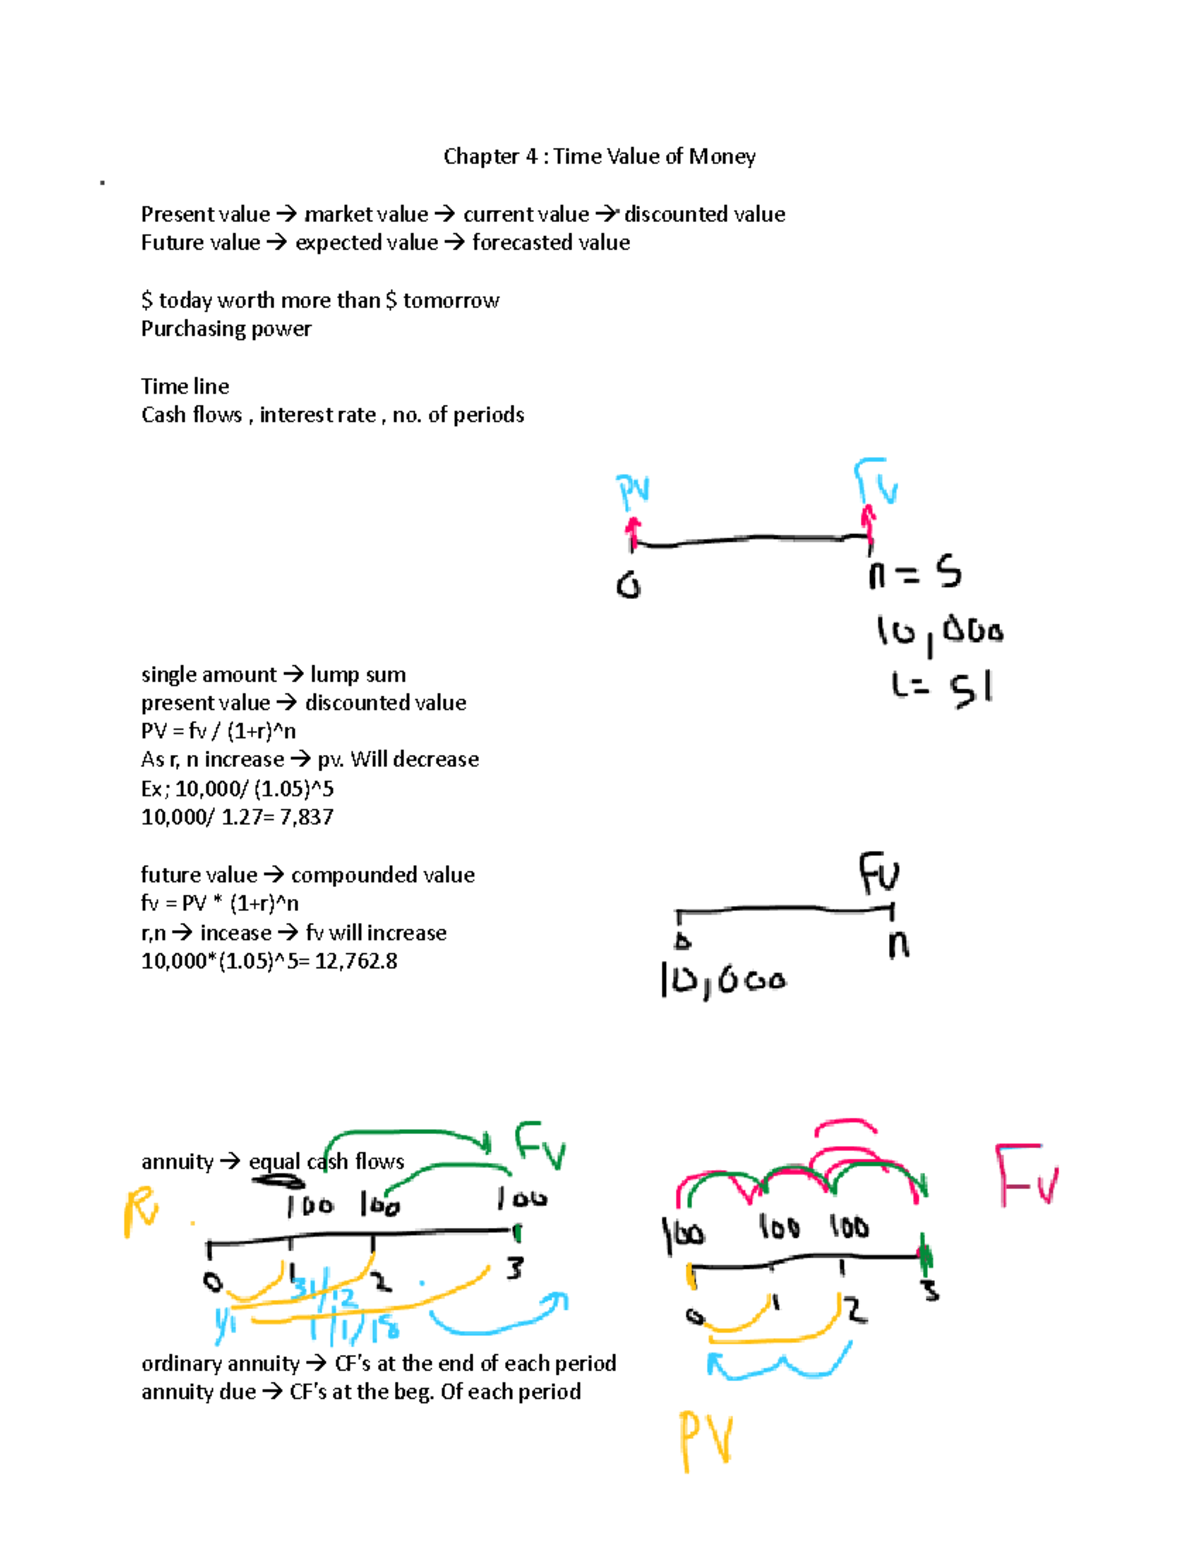 Chapter 4 : Time Value of Money
Present value → market value → current value → discounted value
Future value → expected value → forecasted value
$ today worth more than $ tomorrow
Purchasing power
Time line
Cash flows , interest rate , no. of periods
PV FV
0 n = 5
10,000
single amount → lump sum
present value → discounted value
PV = fv / (1+r)^n
As r, n increase → pv. Will decrease
Ex; 10,000/ (1.05)^5
10,000/ 1.27= 7,837
FV
future value → compounded value
fv = PV * (1+r)^n
r,n → incease → fv will increase
0 n
10,000*(1.05)^5= 12,762.8
10,000
FV
annuity → equal cash flows
FV
100 100 100
100 100 100
0 1 2 3
0 1 2 3
31/12
1/1 1/1/18
ordinary annuity → CF's at the end of each period
annuity due → CF's at the beg. Of each period
PV